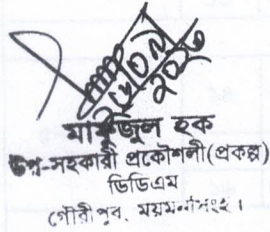 মাফুজুল হক
উপ-সহকারী প্রকৌশলী(প্রকল্প)
ডিডিএম
গৌরীপুর, ময়মনসিংহ।